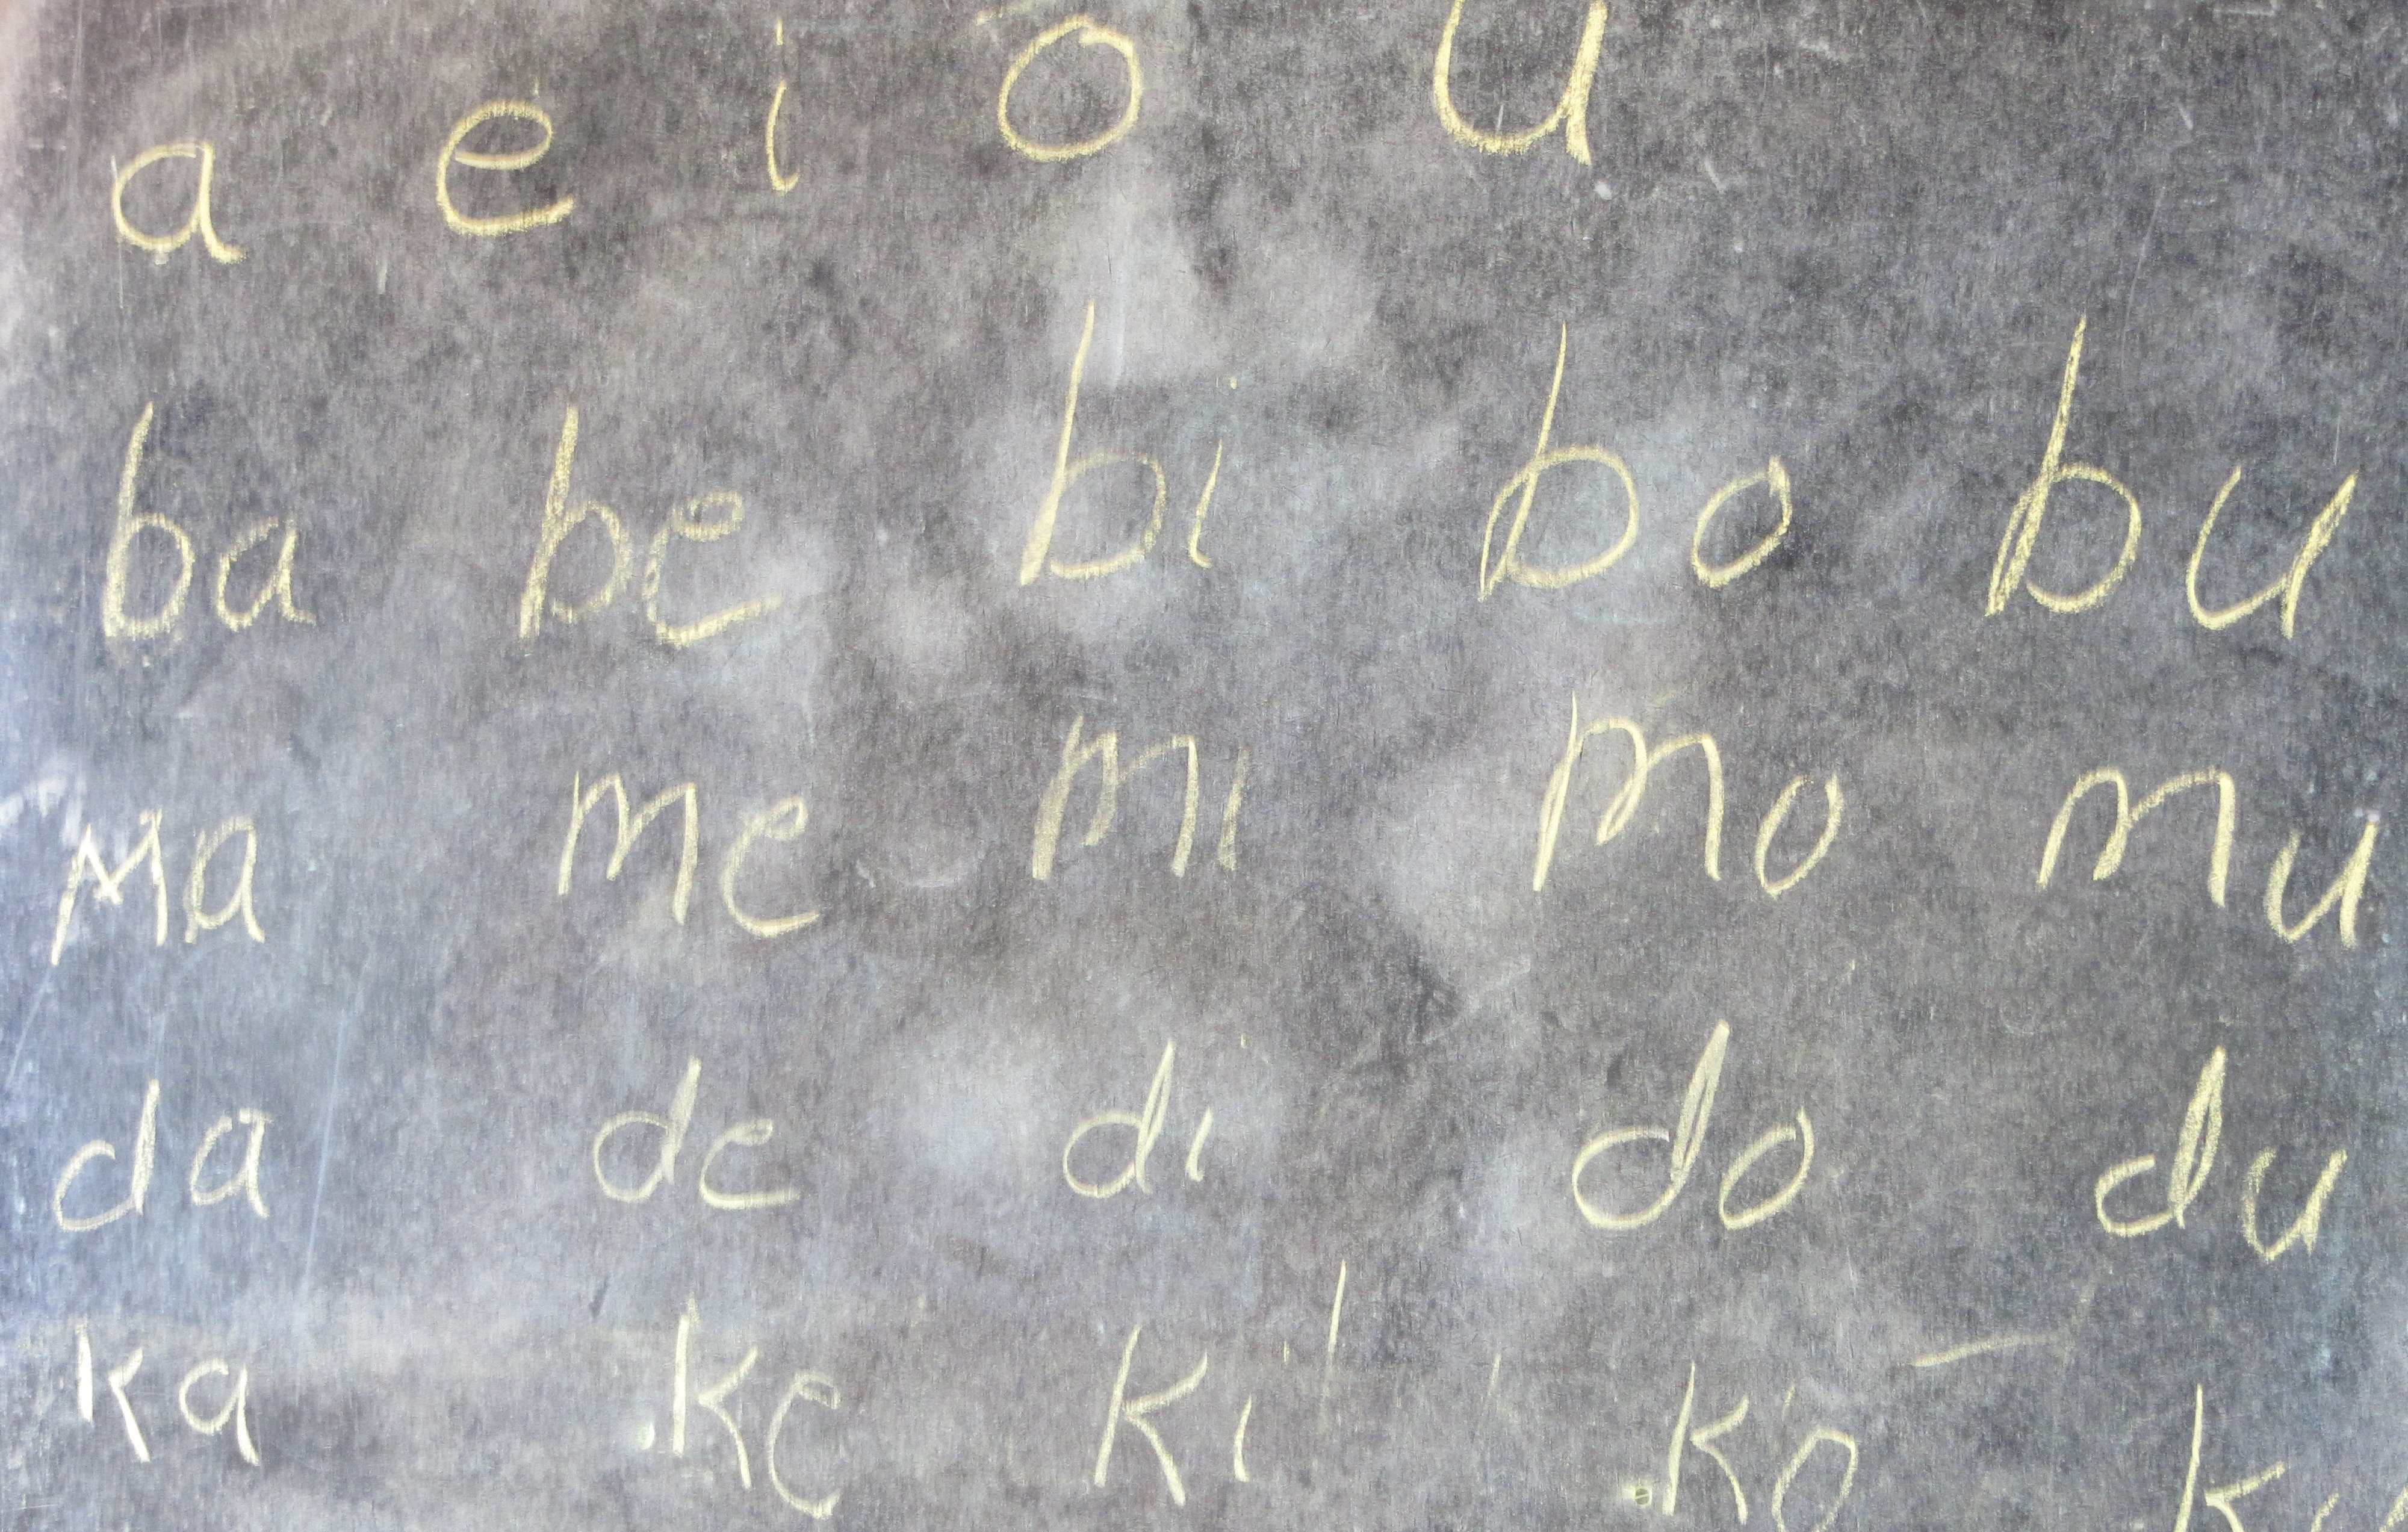 a e i o u
ba be bi bo bu
Ma me mi mo mu
da de di do du
ka ke ki ko